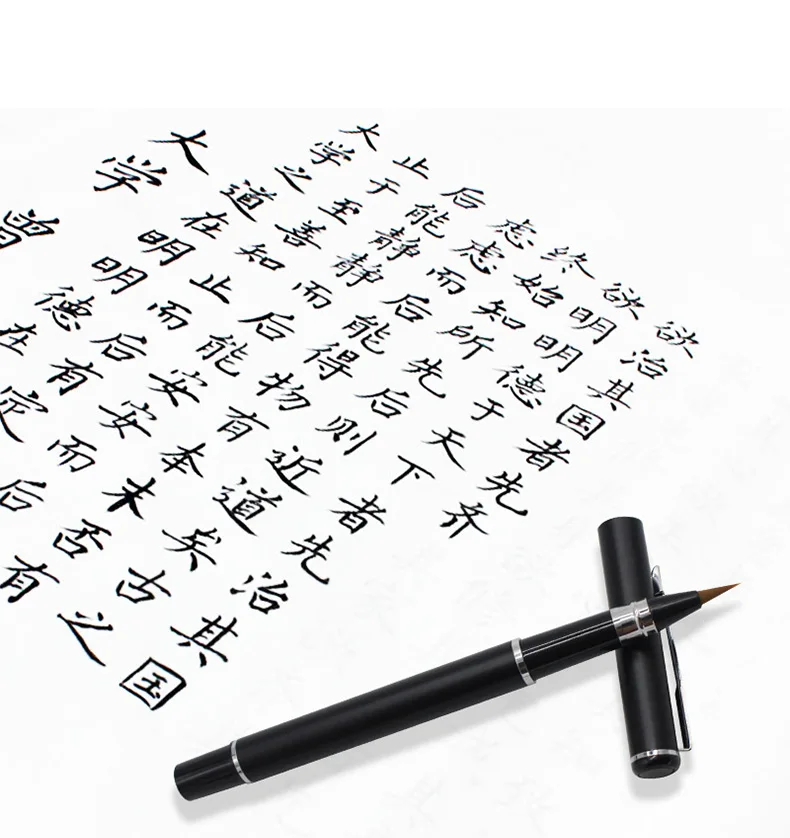 大学 曾
大学之道在明明德在
止于至善知止而后有定
后能静静而后能安安而后
虑虑而后能得物有本末否有
终始知所先后则近道矣古之
欲明明德于天下者先治其国
欲治其国者先齐